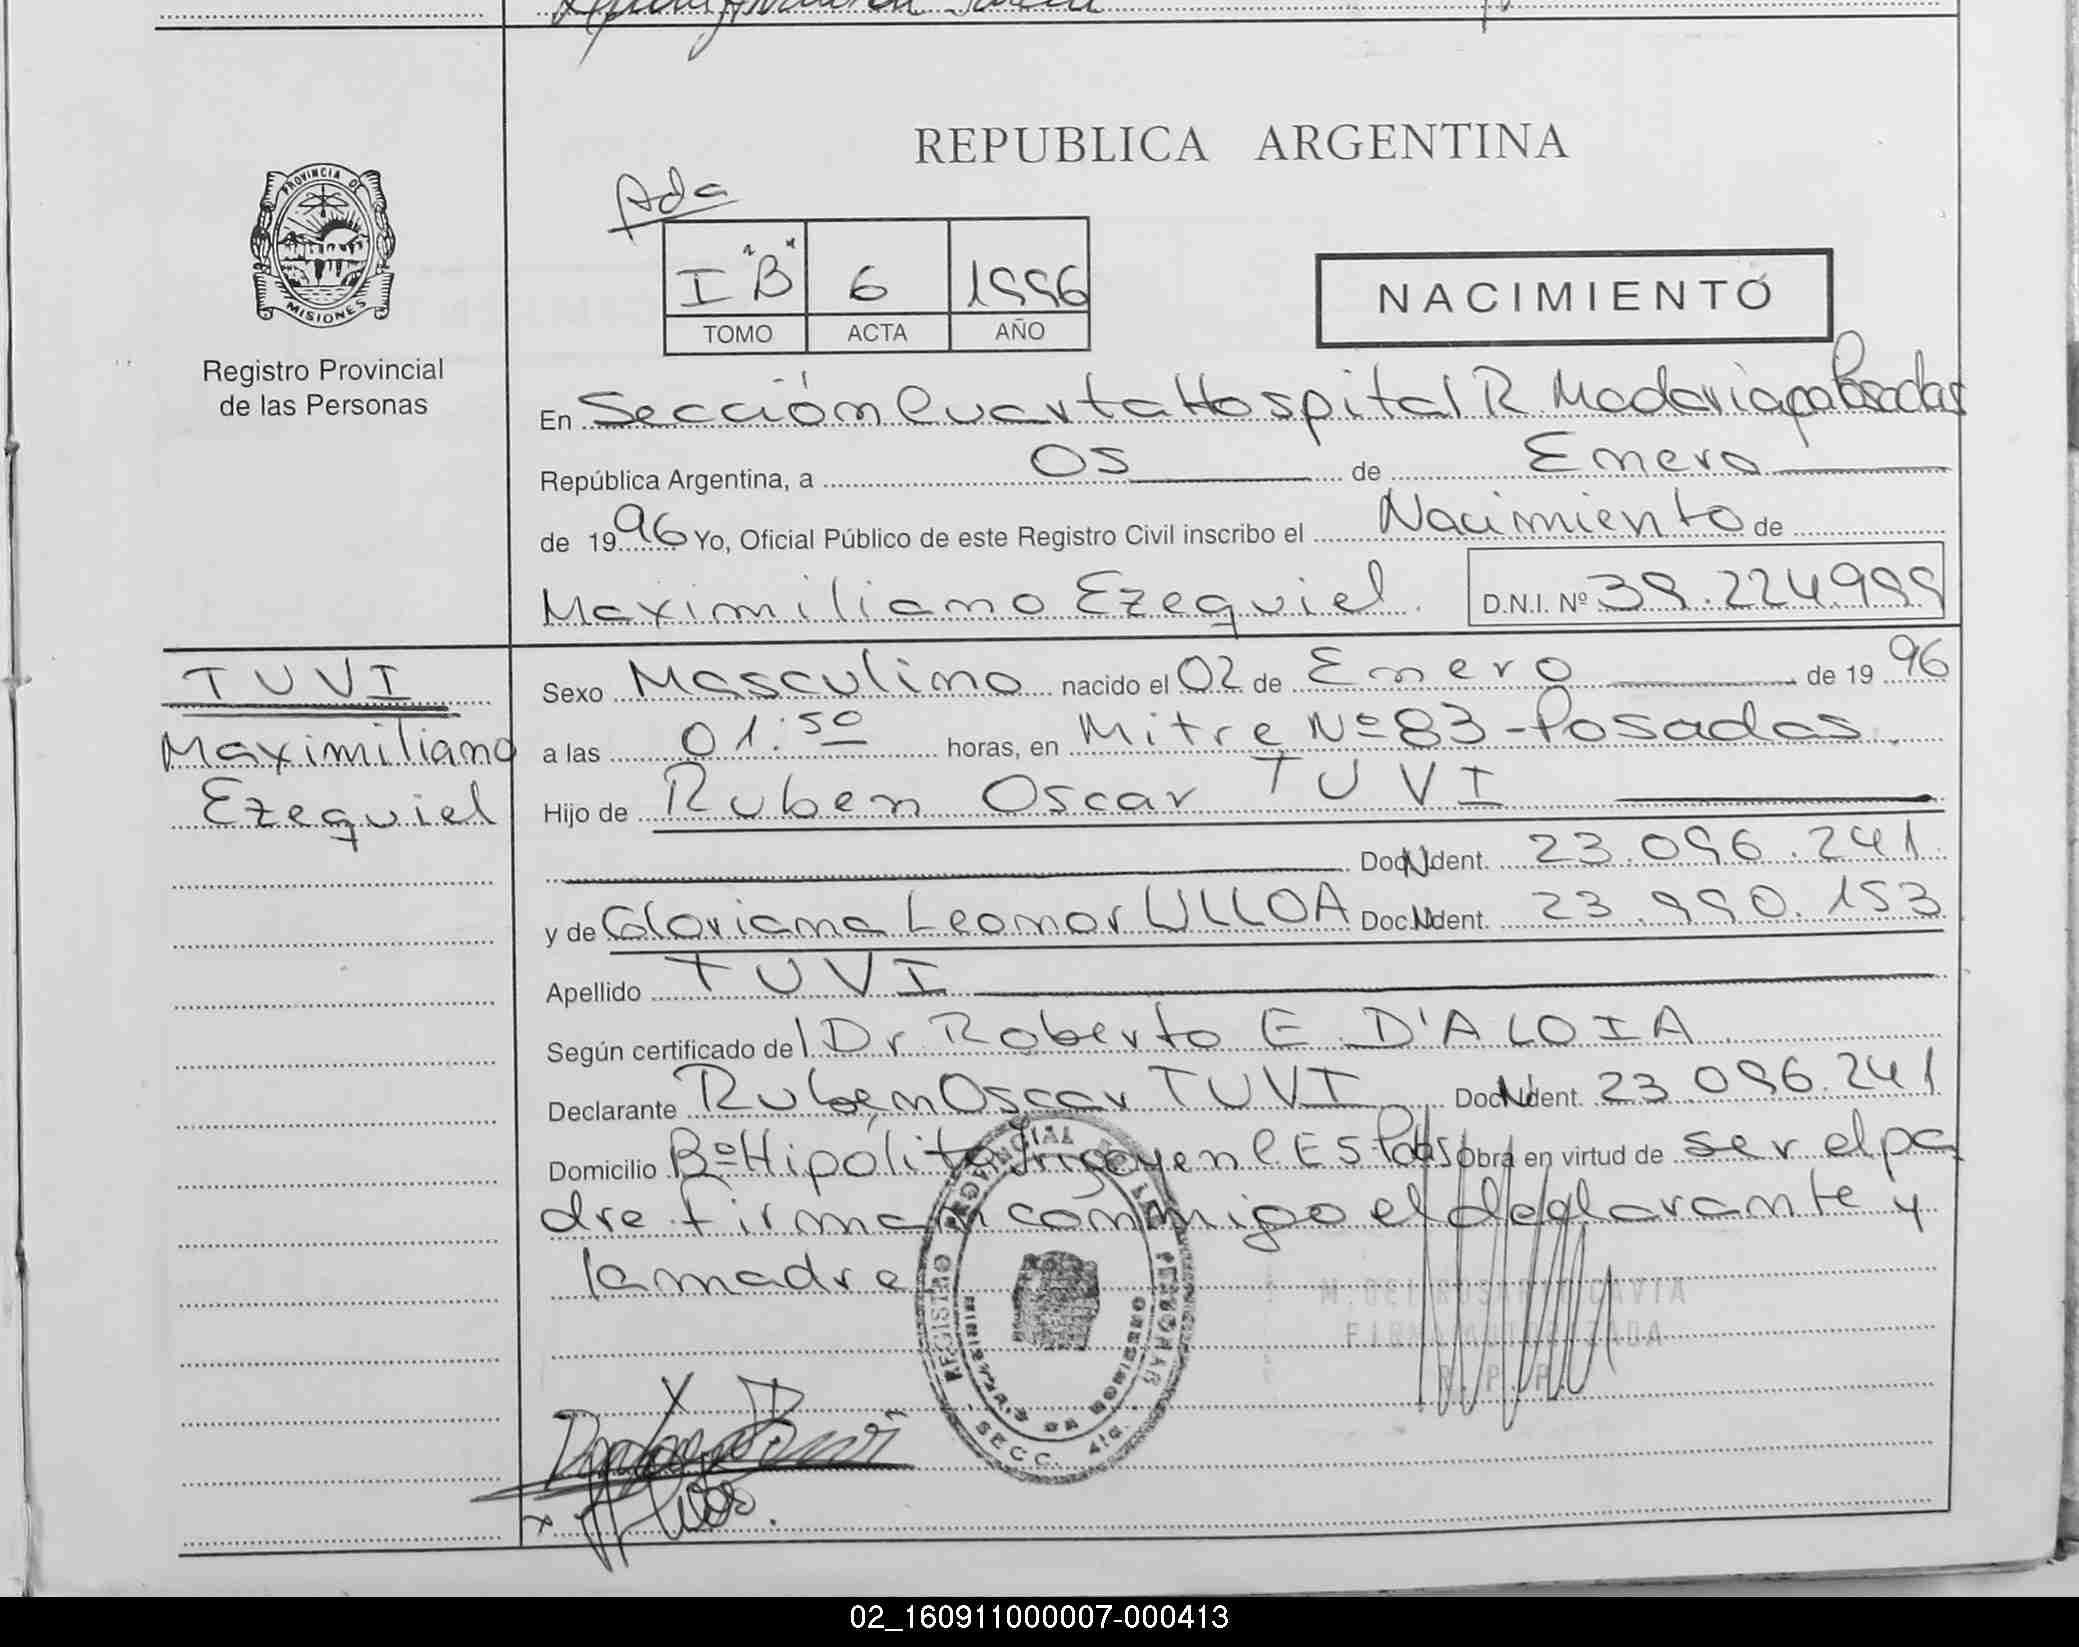 REPUBLICA ARGENTINA
PROVINCIA DE
MISIONES
Registro Provincial
de las Personas
Ada
I "B" 6 1996
TOMO ACTA AÑO
NACIMIENTO
En Sección Cuarta Hospital R Madariaga Posadas
República Argentina, a 05 de Enero
de 1996 Yo, Oficial Público de este Registro Civil inscribo el Nacimiento de
Maximiliano Ezequiel D.N.I. Nº 39.224999
TUVI
Maximiliano
Ezequiel
Sexo Masculino nacido el 02 de Enero de 1996
a las 01:50 horas, en Mitre Nº 83 - Posadas
Hijo de Ruben Oscar TUVI
Doc N Ident. 23.096.241
y de Gloriana Leonor ULLOA Doc. N Ident. 23.990.153
Apellido TUVI
Según certificado del Dr Roberto E D'ALOIA
Declarante Ruben Oscar TUVI Doc N Ident. 23.096.241
Domicilio Bº Hipólito Irigoyen Obra en virtud de ser el pa
dre. Firman conmigo el declarante y
la madre
REGISTRO PROVINCIAL DE LAS PERSONAS
MINISTERIO DE GOBIERNO
- SECC. 4ta. -
FIRMA AUTORIZADA
R. P. P.
02_160911000007-000413